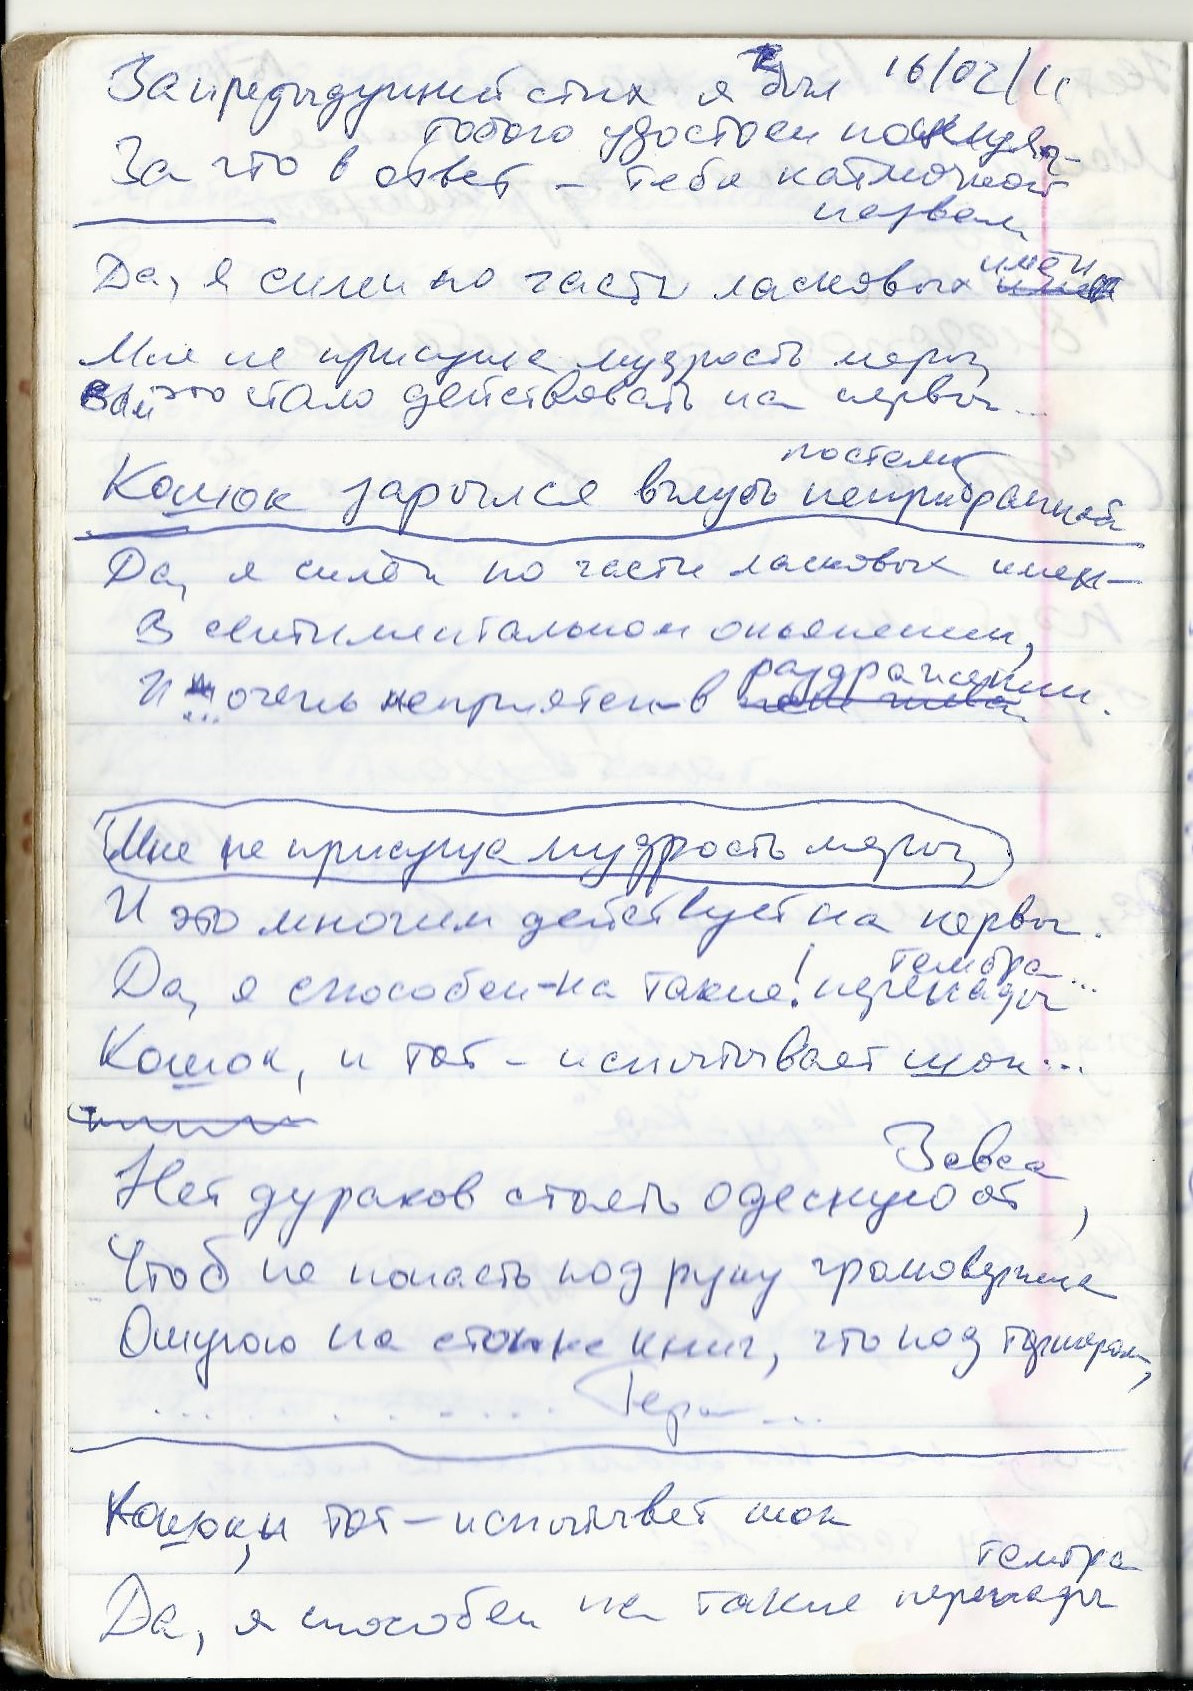 16/02/11
За предыдущий стих я был
тобого удостоен поцелуя,
За что в ответ – тебя
первом
Да, я силён по части ласковых имён
Мне не присуща мудрость меры
Вам это стало действовать на нервы...
постели
Кошок зарылся вглубь неприбранной
Да, я силён по части ласковых имен –
В сентиментальном опьянении,
И очень неприятен – в раздражении.
Мне не присуща мудрость меры
И это многим действует на нервы.
тембра...
Да, я способен – на такие! перепады
Кошок, и тот – испытывает шок...
Зевса
Нет дураков стоять одесную от ,
Чтоб не попасть под руку громовержца
Ощущаю на стопке книг, что под торшером,
. . . . . . . . . Гера ...
Кошок, и тот – испытывет шок
тембра
Да, я способен на такие перепады